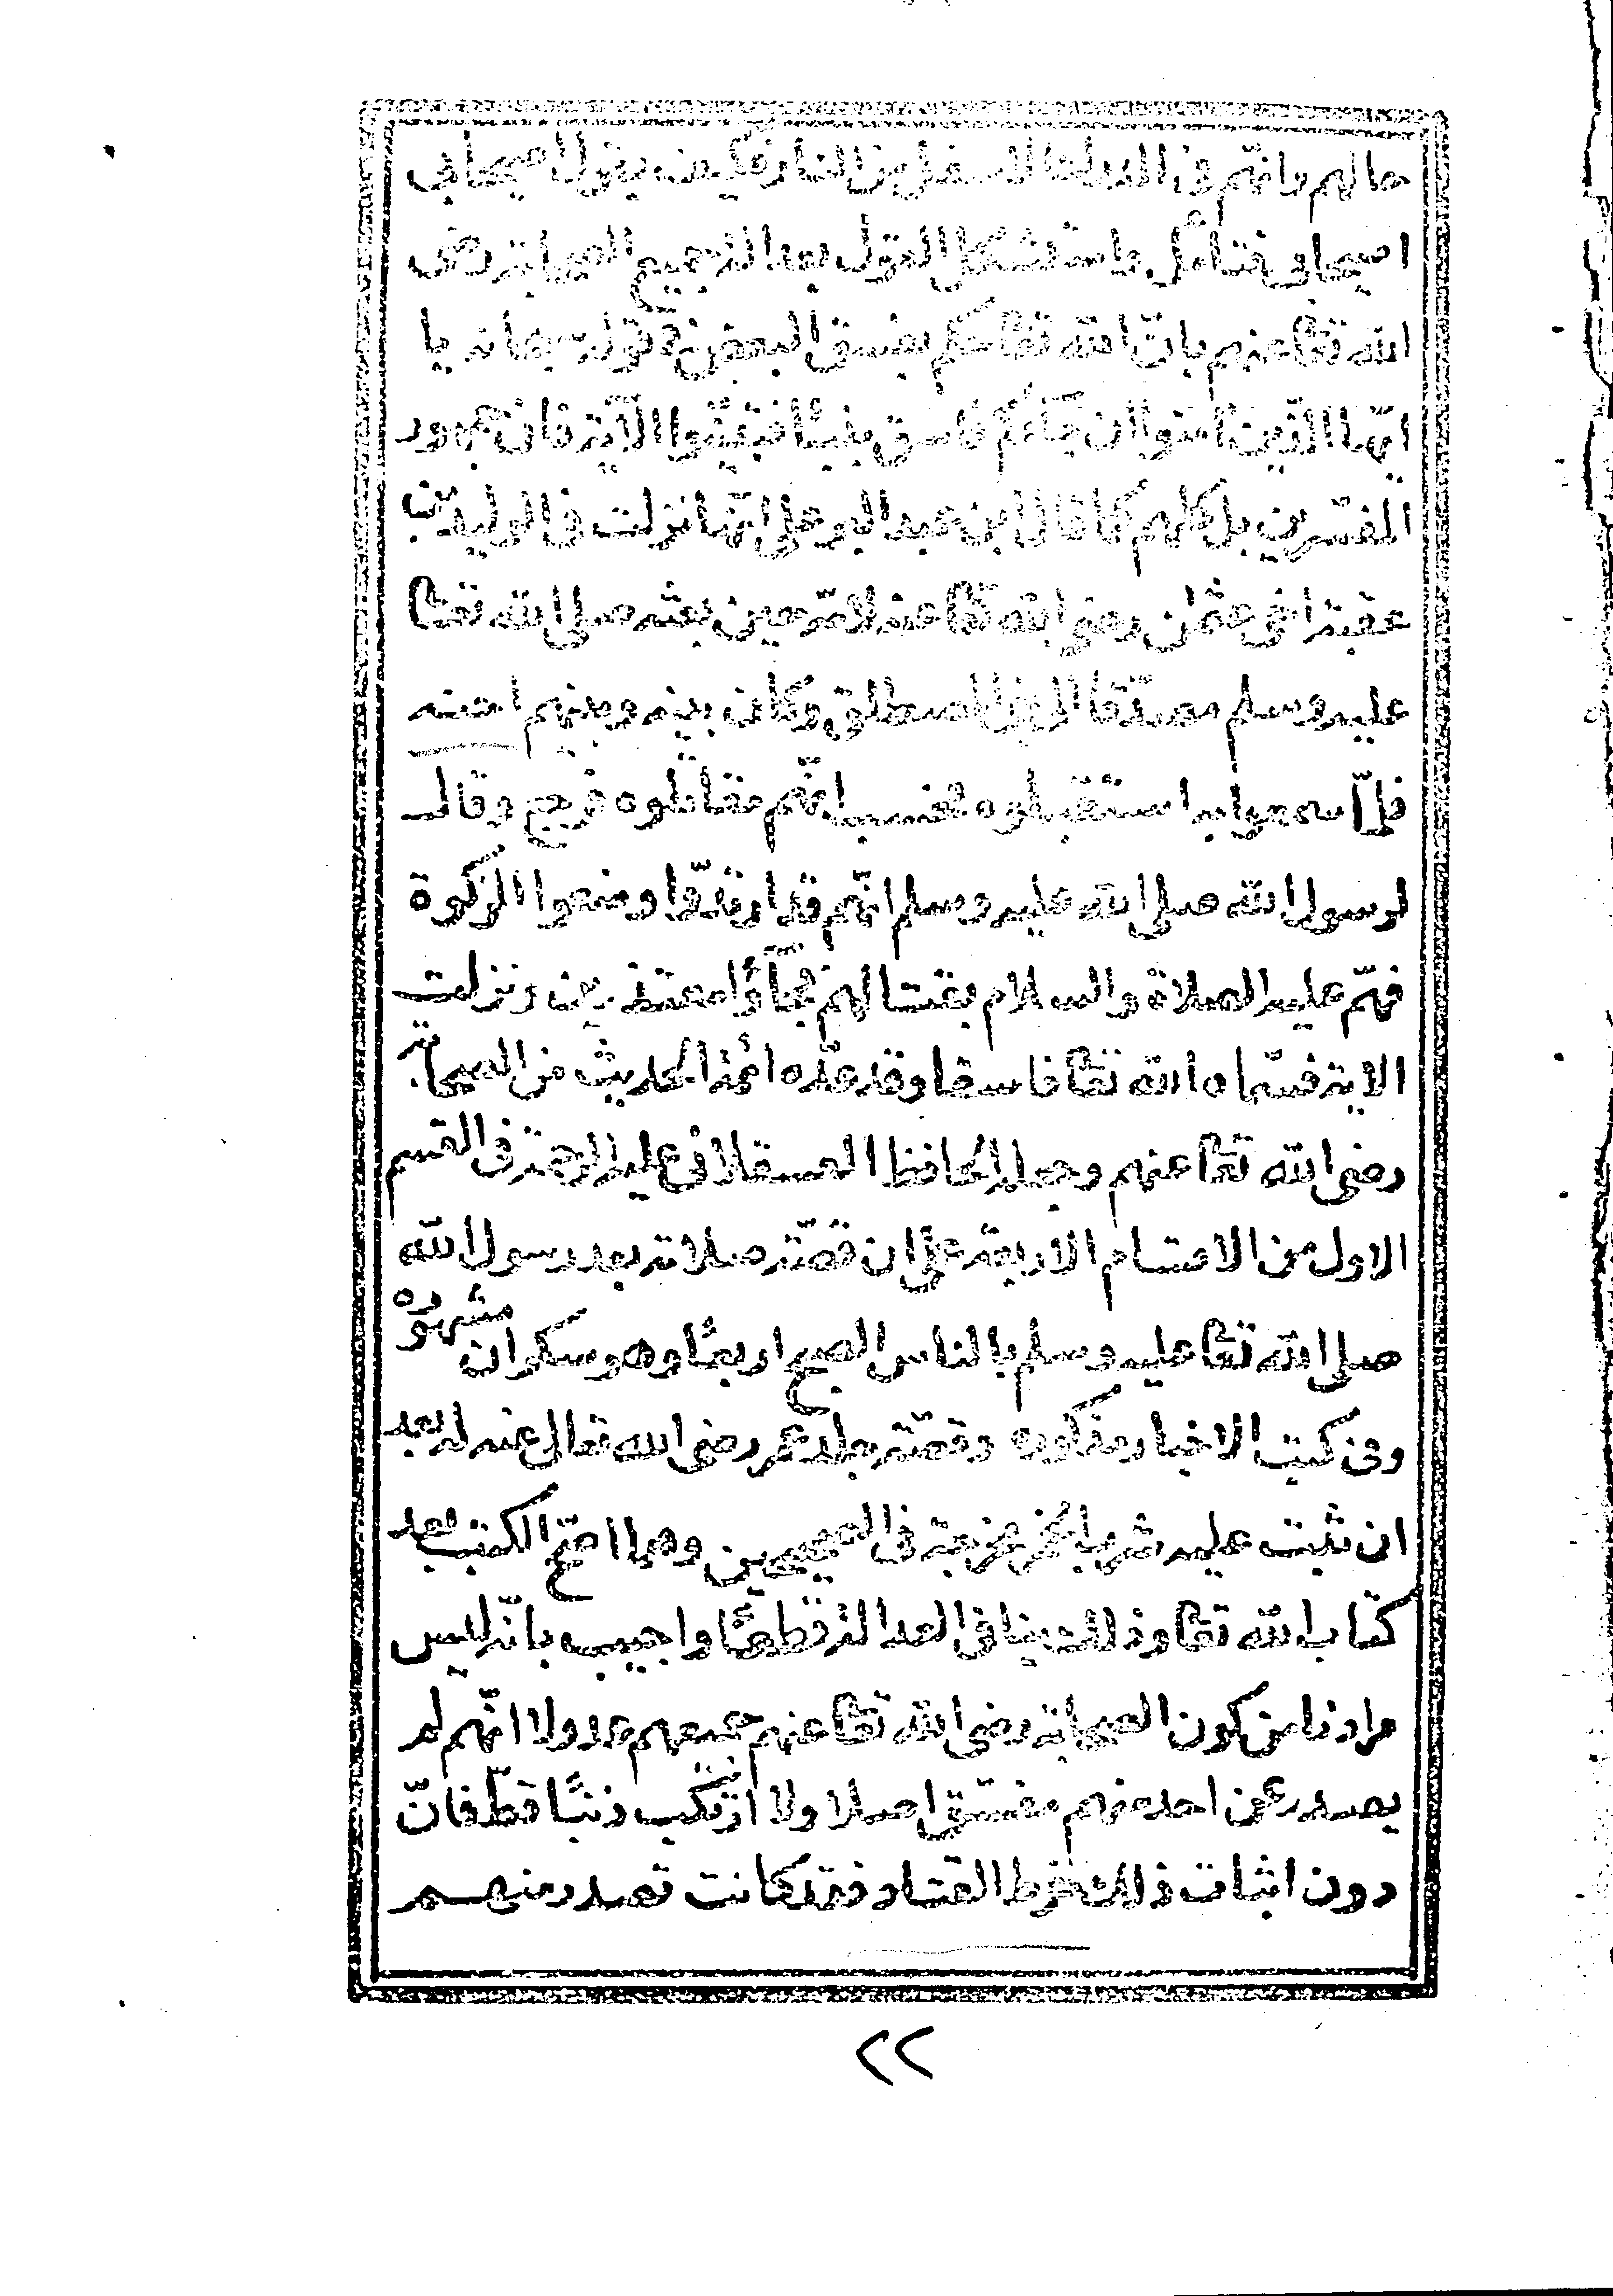 حالهم وانهم في الدرك الاسفل من النار فكيف يقول اصيحابي
اصيحابي فتأمل واستشكل القول بعدالة جميع الصحابة رضى
الله تعا عنهم بانّ الله تعا حكم بفسق البعض في قوله سبحانه يا
ايّها الّذين امنوا ان جآءكم فاسق بنبأ فتبيّنوا الآية فان جمهور
المفسّرين بل كلهم كما قال ابن عبد البر على انّها نزلت في الوليد بن
عقبة اخى عثمن رضى الله تعا عنه لامّه حين بعثه صلى الله تعا
عليه وسلم مصدّقا الى بنى المصطلق وكان بينه وبينهم احنه
فلمّا سمعوا به استقبلوه فحسب انّهم مقاتلوه فرجع وقال
لرسول الله صلى الله عليه وسلم انّهم قد ارتدّوا ومنعوا الزكوة
فهمّ عليه الصلاة والسلام بقتالهم فجآؤا معتذرين ونزلت
الاية فسمّاه الله تعا فاسقا وقد عدّه ائمة الحديث من الصحابة
رضى الله تعا عنهم وجعله الحافظ العسقلانى عليه الرحمة فى القسم
الاول من الاقسام الاربعة على ان قصّة صلاته بعد رسول الله
صلى الله تعا عليه وسلم بالناس الصبح اربعًا وهو سكران مشهوره
وفى كتب الاخبار مذكوره وقصّة جلد عمر رضى الله تعالى عنه له بعد
ان ثبت عليه شربه الخمر مخرجة فى الصحيحين وهما اصحّ الكتب بعد
كتاب الله تعا وذلك ينافى العدالة قطعًا واجيب بانّه ليس
مرادنا من كون الصحابة رضى الله تعا عنهم جميعهم عدولا انّهم لم
يصدر عن احد منهم مفسّق اصلا ولا ارتكب ذنبًا قطّ فانّ
دون اثبات ذلك خرط القتاد فقد كانت تصدر منهم
٢٢